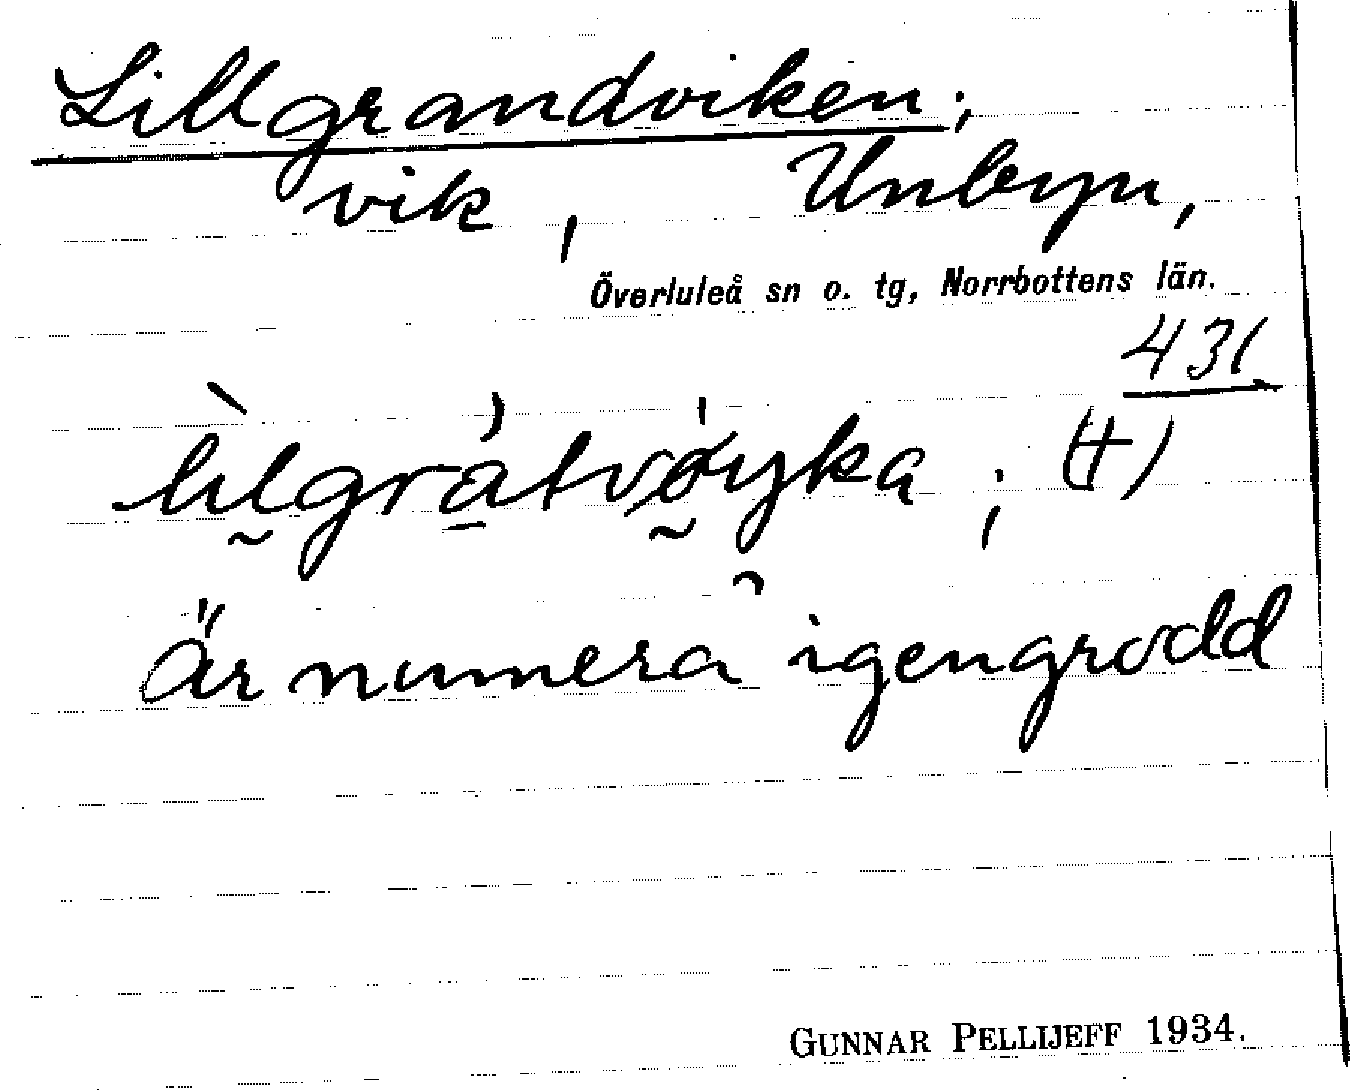 Lillgrandviken;
vik, Unbyn,
Överluleå sn o. tg, Norrbottens län.
431
; (†)
Är numera igengrodd
GUNNAR PELLIJEFF 1934.